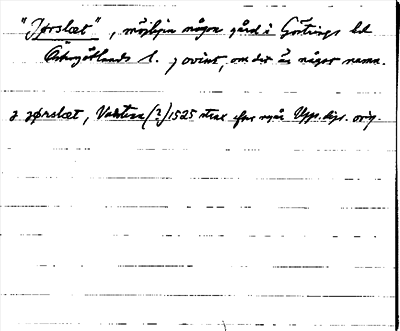 "Jørslæt", möjligen någon gård i Göstrings hd
Östergötlands l. ; ovisst, om det är något namn.
J jørslæt, Vadstena (?) 1525 strax efter nyår Upps. dipl. orig.